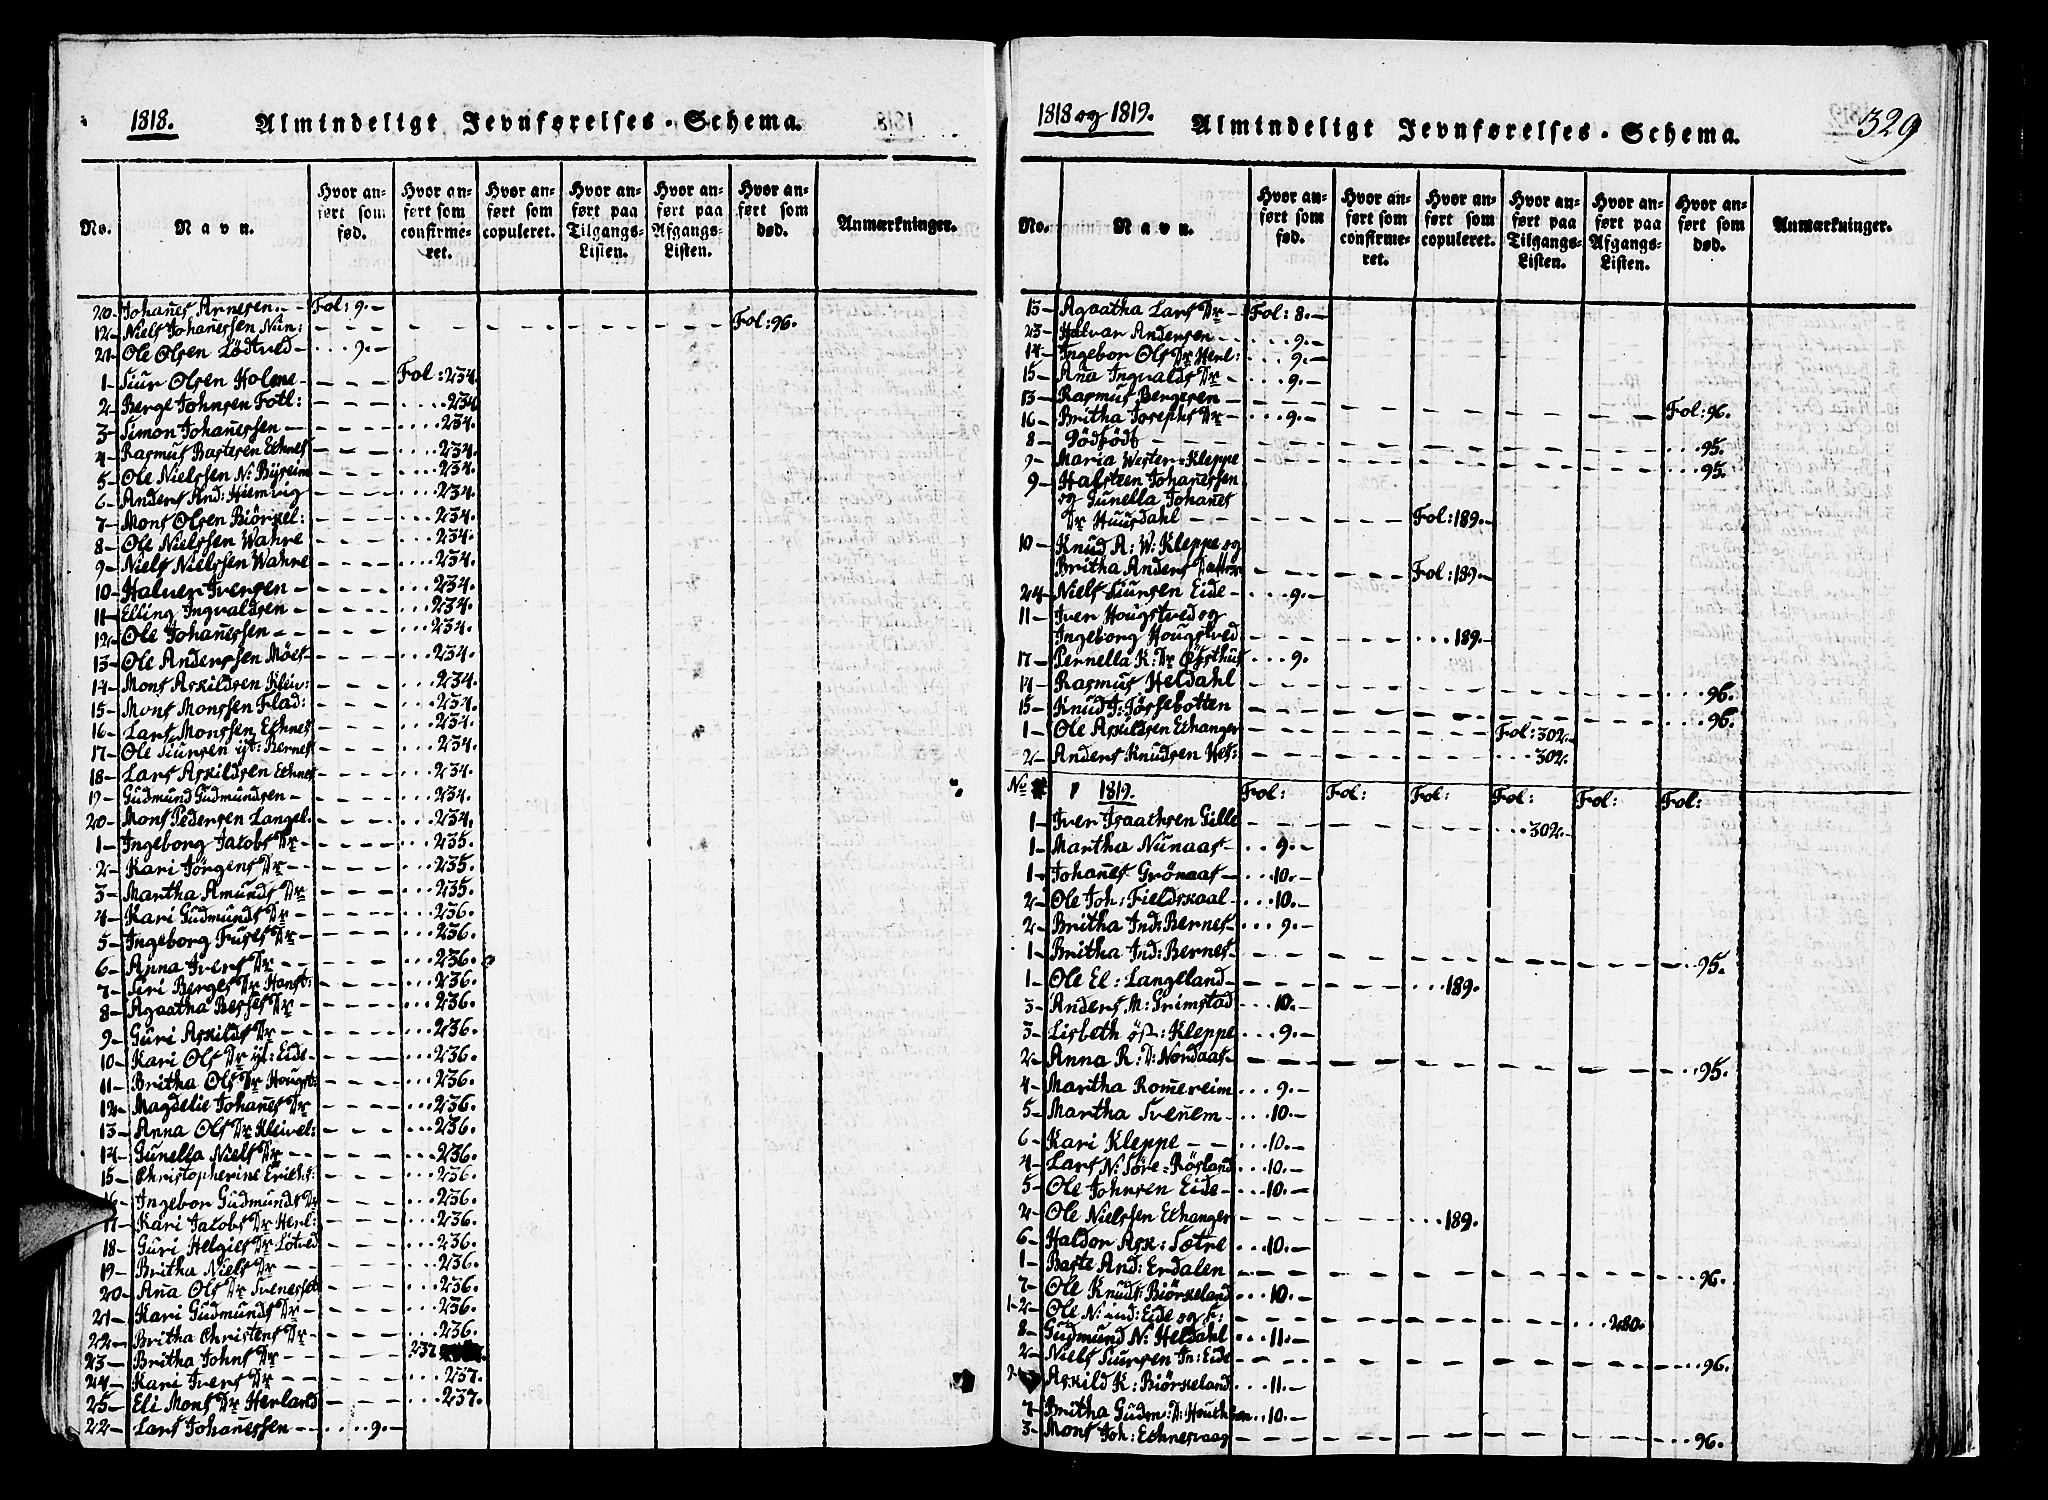 1818.
Almindeligt Jevnførelses-Schema.
No.
Navn.
Hvor anført som fød.
Hvor anført som confirmeret.
Hvor anført som copuleret.
Hvor anført paa Tilgangs-Listen.
Hvor anført paa Afgangs-Listen.
Hvor anført som død.
Anmærkninger.
20 Johan̄es Arnesen Fol: 9.
12 Niels Johan̄essen Nun: Fol: 96.
21 Ole Olsen Lødtved 9.
1 Siur Olsen Holene Fol: 234.
2 Berge Johnsen Fotl: 234
3 Simon Johan̄essen 234.
4 Rasmus Bastesen Echnes 234.
5 Ole Nielssen N: Bÿseim 234.
6 Anders And: Hiemvig 234.
7 Mons Olsen Biörkel: 234.
8 Ole Nielssen Wahre 234.
9 Niels Nielssen Wahre 234.
10 Halver Iversen 234.
11 Elling Ingvaldsen 234.
12 Ole Johan̄essen 234.
13 Ole Anderssen Möes 234.
14 Mons Askildsen Kleiv: 234.
15 Mons Monssen Flad: 234.
16 Lars Monssen Echnes 234.
17 Ole Siursen ÿt: Bernes 234.
18 Lars Askildsen Echnes 234.
19 Gudmund Gudmundsen 234.
20 Mons Pedersen Langel. 234.
1 Ingeborg Jacobs Dr 235.
2 Kari Jörgens Dr 235.
3 Martha Amunds Dr 235.
4 Kari Gudmunds Dr 236.
5 Ingeborg Fuses Dr 236.
6 Anna Ivers Dr 236.
7 Siri Berges Dr Hanst: 236.
8 Agaatha Besses Dr 236.
9 Guri Askilds Dr 236.
10 Kari Ols Dr ÿt: Eide 236.
11 Britha Ols Dr Hougst: 236.
12 Magdelie Johan̄es Dr 236.
13 Anna Ols Dr Kleivel: 236.
14 Gunella Niels Dr 236.
15 Christopherine Erichs: 236.
16 Ingebor Gudmunds Dr 236.
17 Kari Jacobs Dr Herl: 236.
18 Guri Helgies Dr Lötved 236.
19 Britha Niels Dr 236.
20 An̄a Ols Dr Svenesset 236.
21 Kari Gudmunds Dr 236.
22 Britha Christens Dr 236.
23 Britha Johns Dr 237
24 Kari Ivers Dr 237.
25 Eli Mons Dr Herland 237.
22 Lars Johan̄essen 9.
1818 og 1819.
Almindeligt Jevnførelses-Schema.
329
No.
Navn.
Hvor anført som fød.
Hvor anført som confirmeret.
Hvor anført som copuleret.
Hvor anført paa Tilgangs-Listen.
Hvor anført paa Afgangs-Listen.
Hvor anført som død.
Anmærkninger.
13 Agaatha Lars Dr Fol: 8.
23 Halvar Andersen 9.
14 Ingebor Ols Dr Herl: 9.
15 An̄a Ingvalds Dr 9.
13 Rasmus Bergesen Fol: 96.
16 Britha Josephs Dr 9.
8 Dödfödt 95.
9 Maria Wester-Kleppe 95.
9 Halsteen Johan̄essen
og Gunella Johan̄es
Dr Huusdahl Fol: 189.
10 Knud A: W: Kleppe og
Britha Anders Fol: 189.
24 Niels Siursen Eide 9.
11 Iver Hougstved og
Ingeborg Hougstved 189.
17 Pernella K: Dr Østhus 9.
14 Rasmus Heldahl 96.
15 Knud J: Jössebotten 96.
1 Ole Askildsen Echanger Fol: 302.
2 Anders Knudsen Hes: 302.
No 1819. Fol: Fol: Fol: Fol: Fol: Fol:
1 Iver Isaachsen Gille 302.
1 Martha Nunaas 9.
1 Johan̄es Grönaas 10.
2 Ole Joh: Fieldskaal 10.
2 Britha Ind: Bernes 9.
1 Britha Ind: Bernes 95.
1 Ole El: Langeland 189.
3 Anders M: Grimstad 10.
3 Lisbeth öst: Kleppe 9.
2 Anna R: D: Nordaas 95.
4 Martha Romereim 9.
5 Martha Svenem 10.
6 Kari Kleppe 10.
4 Lars N: Söre-Rösland 10.
5 Ole Johnsen Eide 10.
2 Ole Nielssen Echanger 189.
6 Haldor Ask: Sætre 10.
1 Baste And: Erdalen 96.
7 Ole Knuds: Biörkeland 10.
1-2 Ole N: ind: Eide og 280.
8 Gudmund N: Heldahl 11.
2 Niels Siursen In: Eide 96.
Askild K: Biörkeland 11.
7 Britha Gudm: D: 10.
3 Mons Joh: Echnesvaag 96.